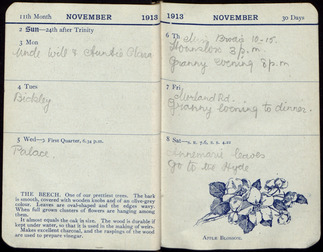 11th Month NOVEMBER 1913
2 Sun—24th after Trinity
3 Mon
Uncle Will & Auntie Clara
4 Tues
Bickley
5 Wed—☽ First Quarter, 6.34 p.m.
Palace.
THE BEECH. One of our prettiest trees. The bark
is smooth, covered with wooden knobs and of an olive-grey
colour. Leaves are oval-shaped and the edges wavy.
When full grown clusters of flowers are hanging among
them.
It almost equals the oak in size. The wood is durable if
kept under water, so that it is used in the making of weirs.
Makes excellent charcoal, and the raspings of the wood
are used to prepare vinegar.
1913 NOVEMBER 30 Days
6 Th
10-15.
8 p.m.
Granny evening 8 p.m
7 Fri
Rd.
Granny evening to dinner.
8 Sat
Annemarie leaves
Go to Hyde
APPLE BLOSSOM.